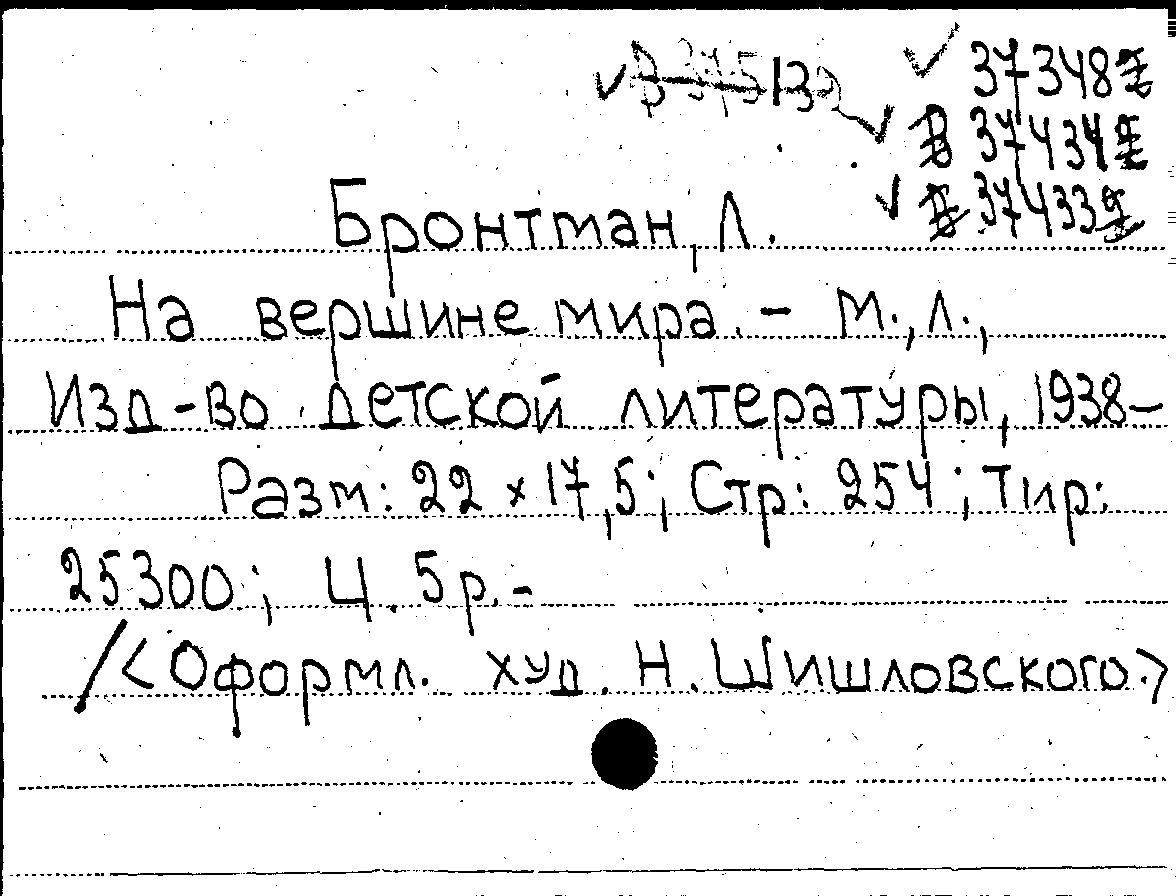 37348
37434
37433
Бронтман, Л.
На вершине мира. - М., Л.,
Изд-во Детской литературы, 1938-
Разм: 22 x 17,5; Стр: 254; Тир:
25300; Ц. 5р.-
/<Оформл. худ. Н. Шишловского.>